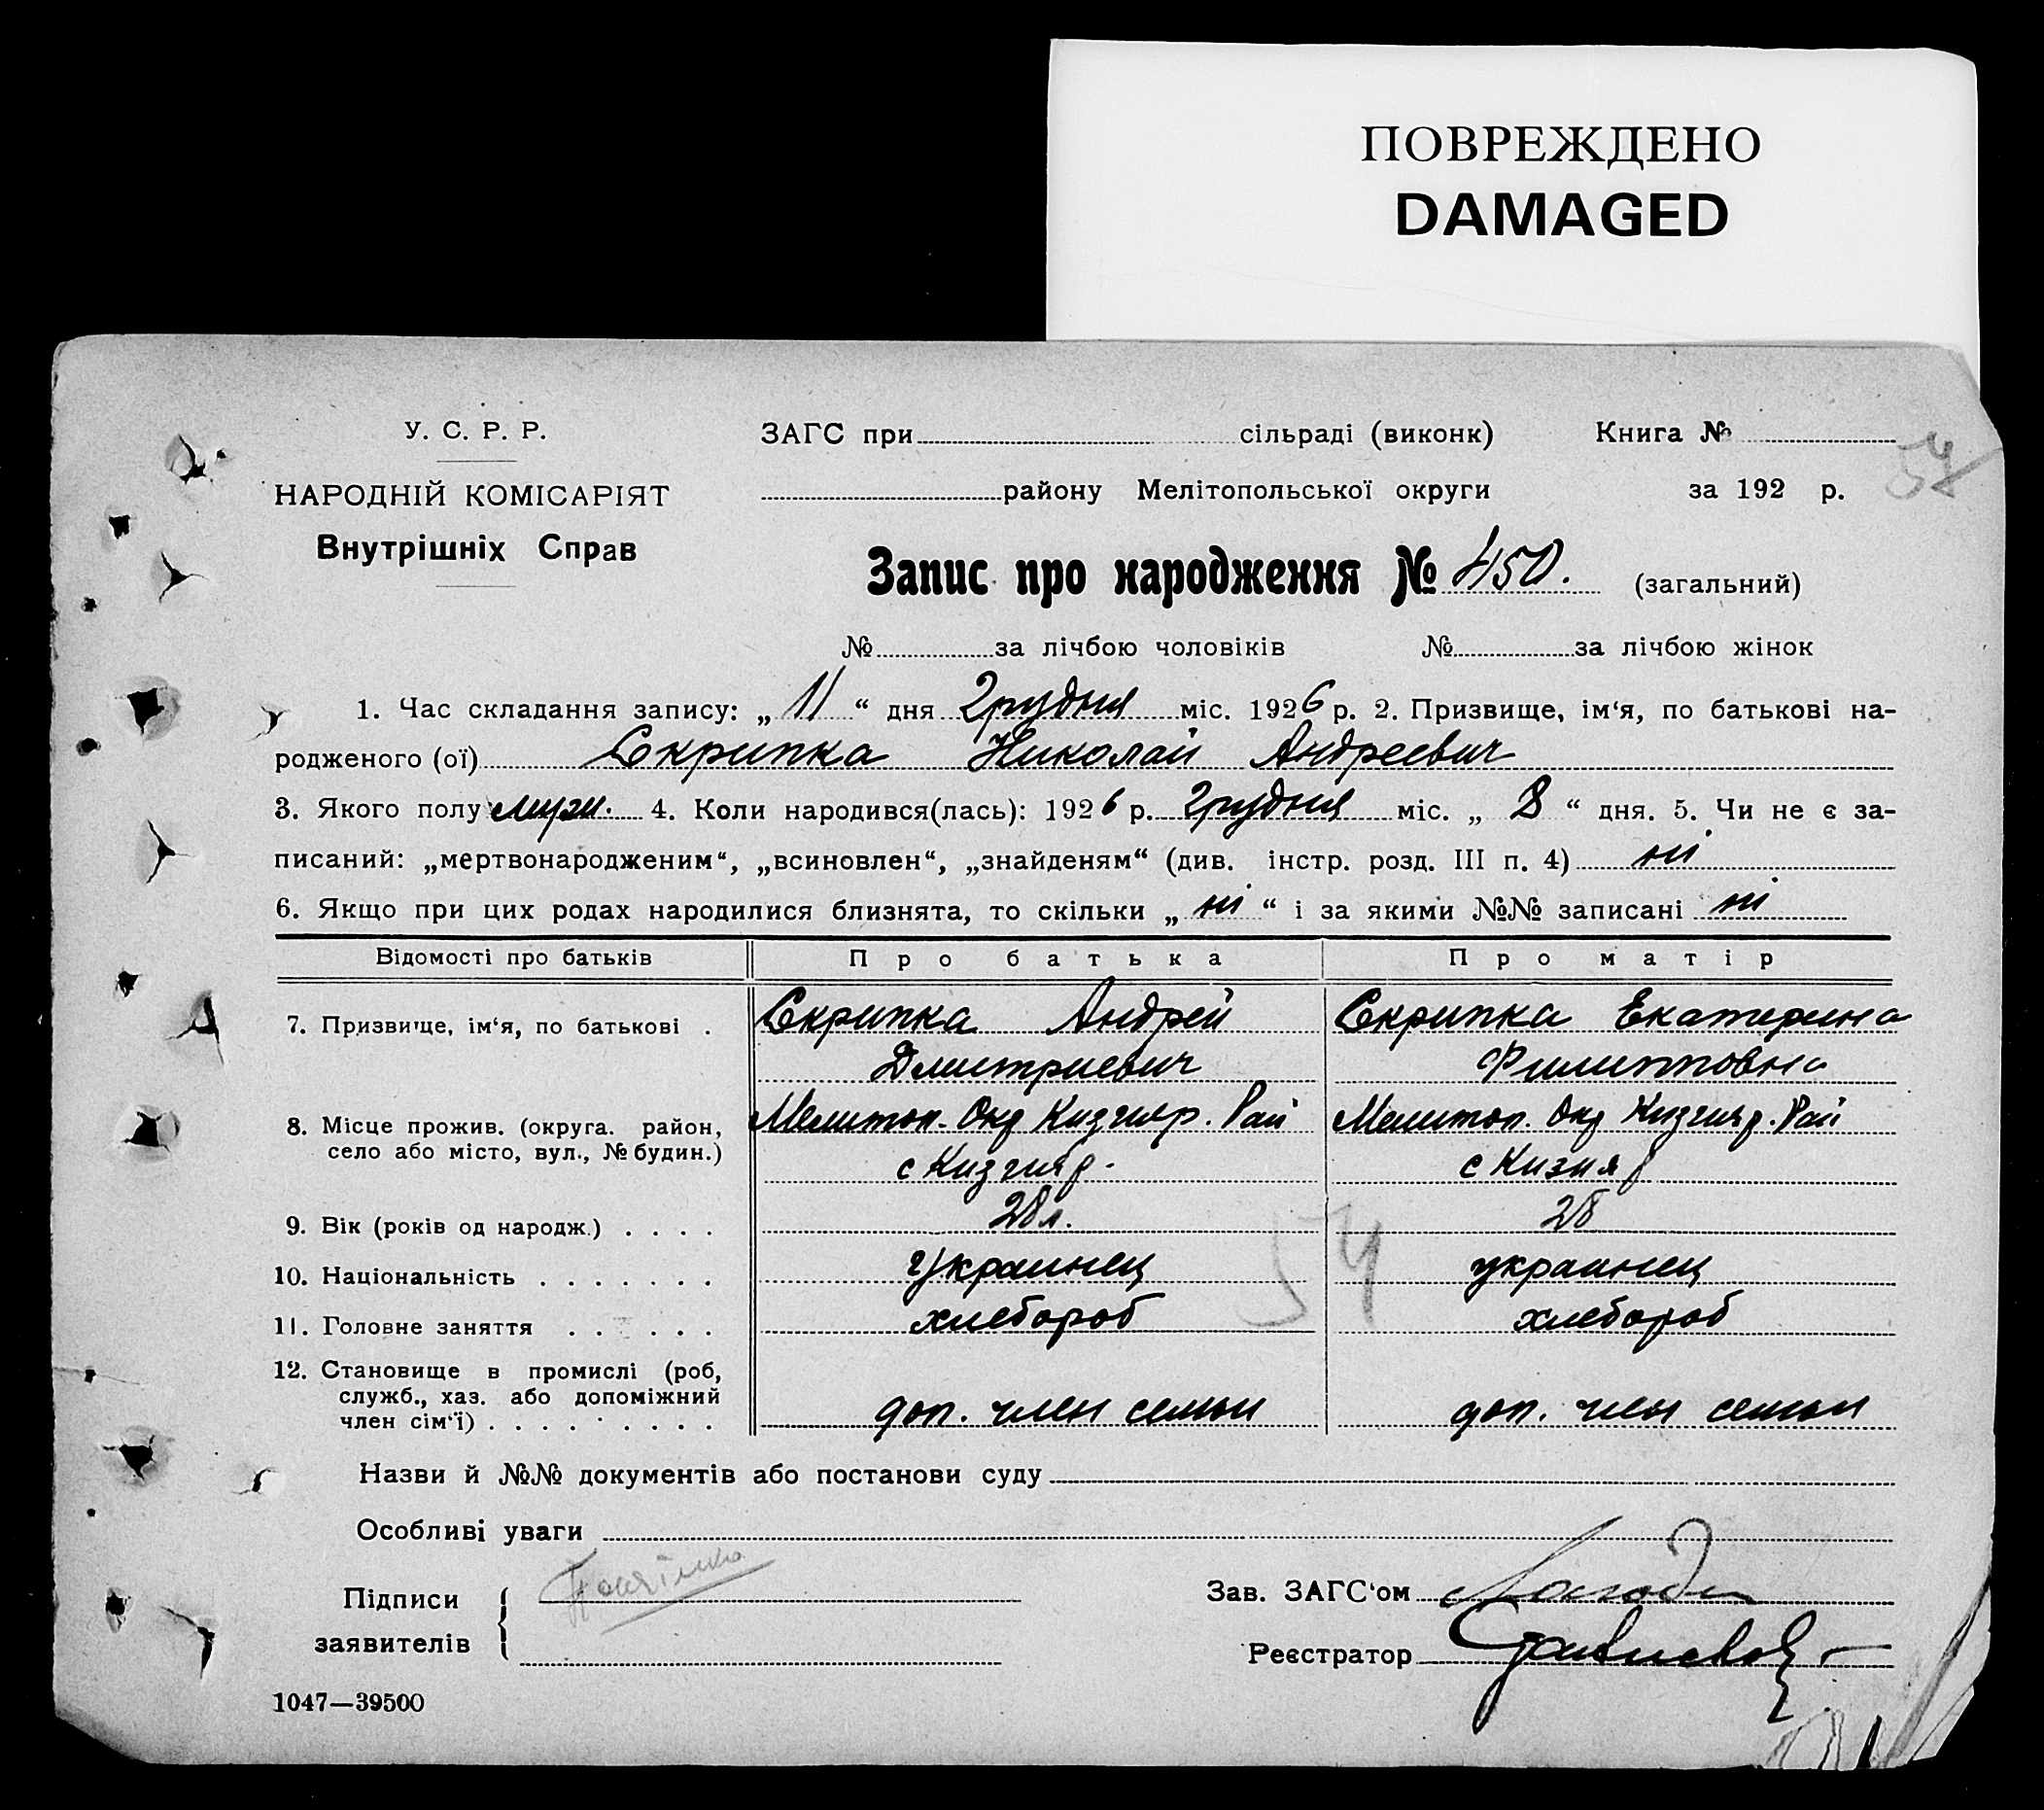 ПОВРЕЖДЕНО
DAMAGED
У. С. Р. Р.
НАРОДНІЙ КОМІСАРІЯТ
Внутрішніх Справ
ЗАГС при сільраді (виконк) Книга №
54
району Мелітопольської округи за 192 р.
Запис про народження № 450. (загальний)
№ за лічбою чоловіків № за лічбою жінок
1. Час складання запису: „ 11 “ дня Грудня міс. 1926 р. 2. Призвище, ім‘я, по батькові на-
родженого (ої) Скрипка Николай Андреевич
3. Якого полу муж. 4. Коли народився(лась): 1926 р. Грудня міс. „ 8 “ дня. 5. Чи не є за-
писаний: „мертвонародженим“, „всиновлен“, „знайденям“ (див. інстр. розд. III п. 4) ні
6. Якщо при цих родах народилися близнята, то скільки „ ні “ і за якими №№ записані ні
Відомості про батьків Про батька Про матір
7. Призвище, ім‘я, по батькові . Скрипка Андрей Скрипка Екатерина
Дмитриевич Филипповна
8. Місце прожив. (округа. район, Мелитоп. Окр Кизияр. Рай Мелитоп. Окр Кизияр. Рай
село або місто, вул., № будин.) с Кизияр. с Кизияр
9. Вік (років од народж.) . . . . 28 л. 28
10. Національність . . . . . . . украинец украинец
54
11. Головне заняття . . . . . . хлебороб хлебороб
12. Становище в промислі (роб,
служб., хаз. або допоміжний
член сім‘ї) . . . . . . . . доп. член семьи доп. член семьи
Назви й №№ документів або постанови суду
Особливі уваги
Підписи
заявителів
Зав. ЗАГС‘ом
Реєстратор
1047—39500